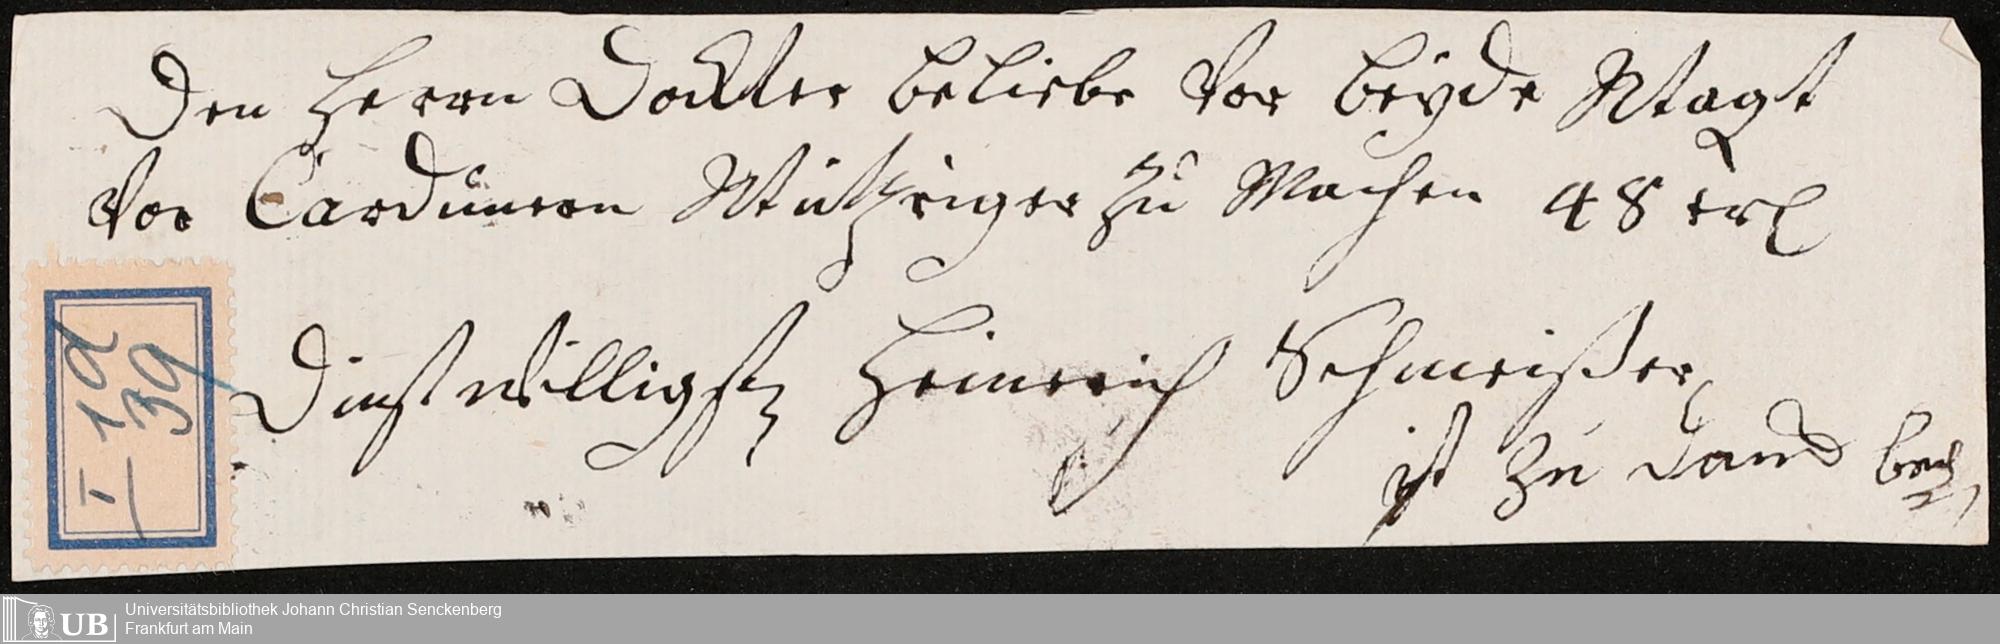 Den Herrn Docktter beliebe Vor beyde Magt
Vor Carduneron Mützeriger zu Machen 48 xrl
Dinstwilligster Heinerich Schmeißer
ist zu Danck bez
I 1d
39
Universitätsbibliothek Johann Christian Senckenberg
Frankfurt am Main
UB